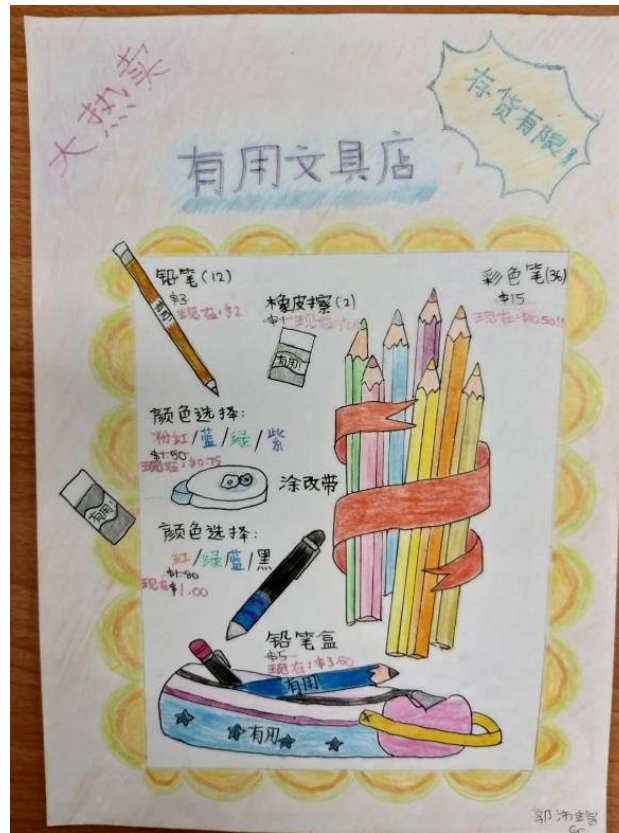 大热卖
存货有限!
有用文具店
铅笔(12)
$3
现在:$2
有用
橡皮擦(2)
$1
现在
有用
彩色笔(36)
$15
现在:
颜色选择:
粉红/蓝/绿/紫
$1.50
现在:$0.75
涂改带
有用
颜色选择:
红/绿/蓝/黑
现在$1.00
铅笔盒
$5
现在:$3.50
有用
有用